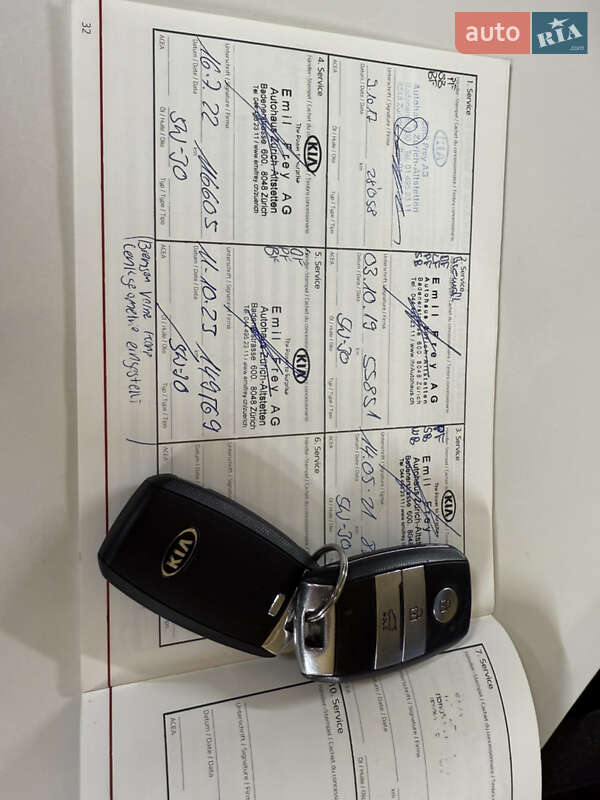 auto RIA .com
32
1. Service
Händler-Stempel / Cachet du concessionnaire / Timbro concessionario
KIA
Autohaus Zürich-Altstetten
Unterschrift / Signature / Firma
9.10.17
28'058
Datum / Date / Data
km
ACEA
Öl / Huile / Olio
Typ / Type / Tipo
2. Service
Emil Frey AG
Autohaus Zürich-Altstetten
Badenerstrasse 600, 8048 Zürich
Unterschrift / Signature / Firma
03.10.19
55851
Datum / Date / Data
km
5W-30
ACEA
Öl / Huile / Olio
Typ / Type / Tipo
3. Service
KIA
The Power to Surprise
Emil Frey
Autohaus Zürich-Altstetten
Badenerstrasse 600, 8048
Unterschrift / Signature / Firma
14.05.21
Datum / Date / Data
5W-30
ACEA
Öl / Huile / Olio
4. Service
Händler-Stempel / Cachet du concessionnaire / Timbro concessionario
KIA
The Power to Surprise
Emil Frey AG
Autohaus Zürich-Altstetten
Badenerstrasse 600, 8048 Zürich
Tel. 044 495 23 11 / www.emilfrey.ch/zuerich
Unterschrift / Signature / Firma
16.7.22
116605
Datum / Date / Data
km
5W-30
ACEA
Öl / Huile / Olio
Typ / Type / Tipo
5. Service
Händler-Stempel / Cachet du concessionnaire / Timbro concessionario
KIA
The Power to Surprise
Emil Frey AG
Autohaus Zürich-Altstetten
Badenerstrasse 600, 8048 Zürich
Tel. 044 495 23 11 / www.emilfrey.ch/zuerich
Unterschrift / Signature / Firma
11.10.23
149769
Datum / Date / Data
5W-30
ACEA
Öl / Huile / Olio
Typ / Type / Tipo
6. Service
Händler-Stempel / Cachet du concessionnaire
KIA
7. Service
Händler-Stempel / Cachet du concessionnaire
Unterschrift / Signature / Firma
Datum / Date / Data
Öl / Huile / Olio
ACEA
10. Service
Händler-Stempel / Cachet du concessionnaire
Unterschrift / Signature / Firma
Datum / Date / Data
Öl / Huile / Olio
ACEA